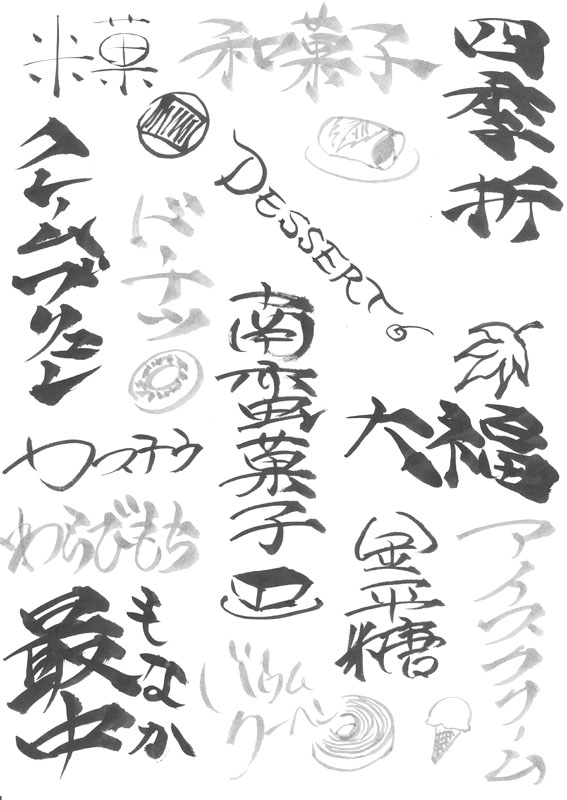 米菓
和菓子
四季折
クレームブリュレ
ドーナツ
DESSERT
南蛮菓子
大福
カステラ
わらびもち
金平糖
アイスクリーム
最中
もなか
バウム
クーヘン